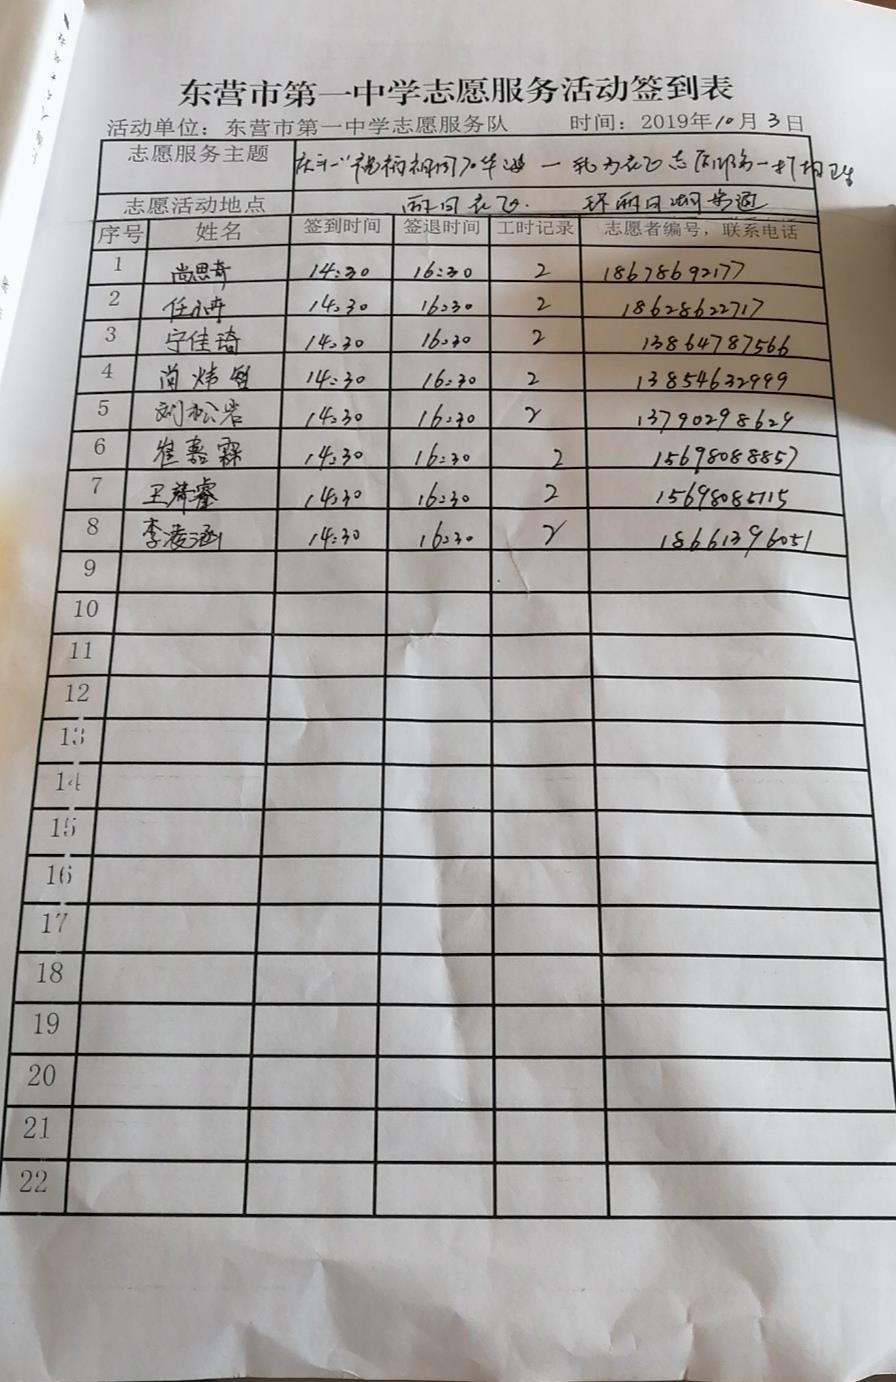 东营市第一中学志愿服务活动签到表
活动单位：东营市第一中学志愿服务队 时间：2019年10月3日
志愿服务主题 庆十一"祝福祖国
志愿活动地点
序号 姓名 签到时间 签退时间 工时记录 志愿者编号，联系电话
1 尚思奇 14:30 16:30 2 18678692177
2 任 14:30 16:30 2 18628622717
3 宁佳琦 14:30 16:30 2 13864787566
4 尚炜 14:30 16:30 2 13854632999
5 刘松岩 14:30 16:30 2 13790298629
6 崔嘉霖 14:30 16:30 2 15698088857
7 王 睿 14:30 16:30 2 15698085115
8 李凌涵 14:30 16:30 2 18661396051
9
10
11
12
13
14
15
16
17
18
19
20
21
22